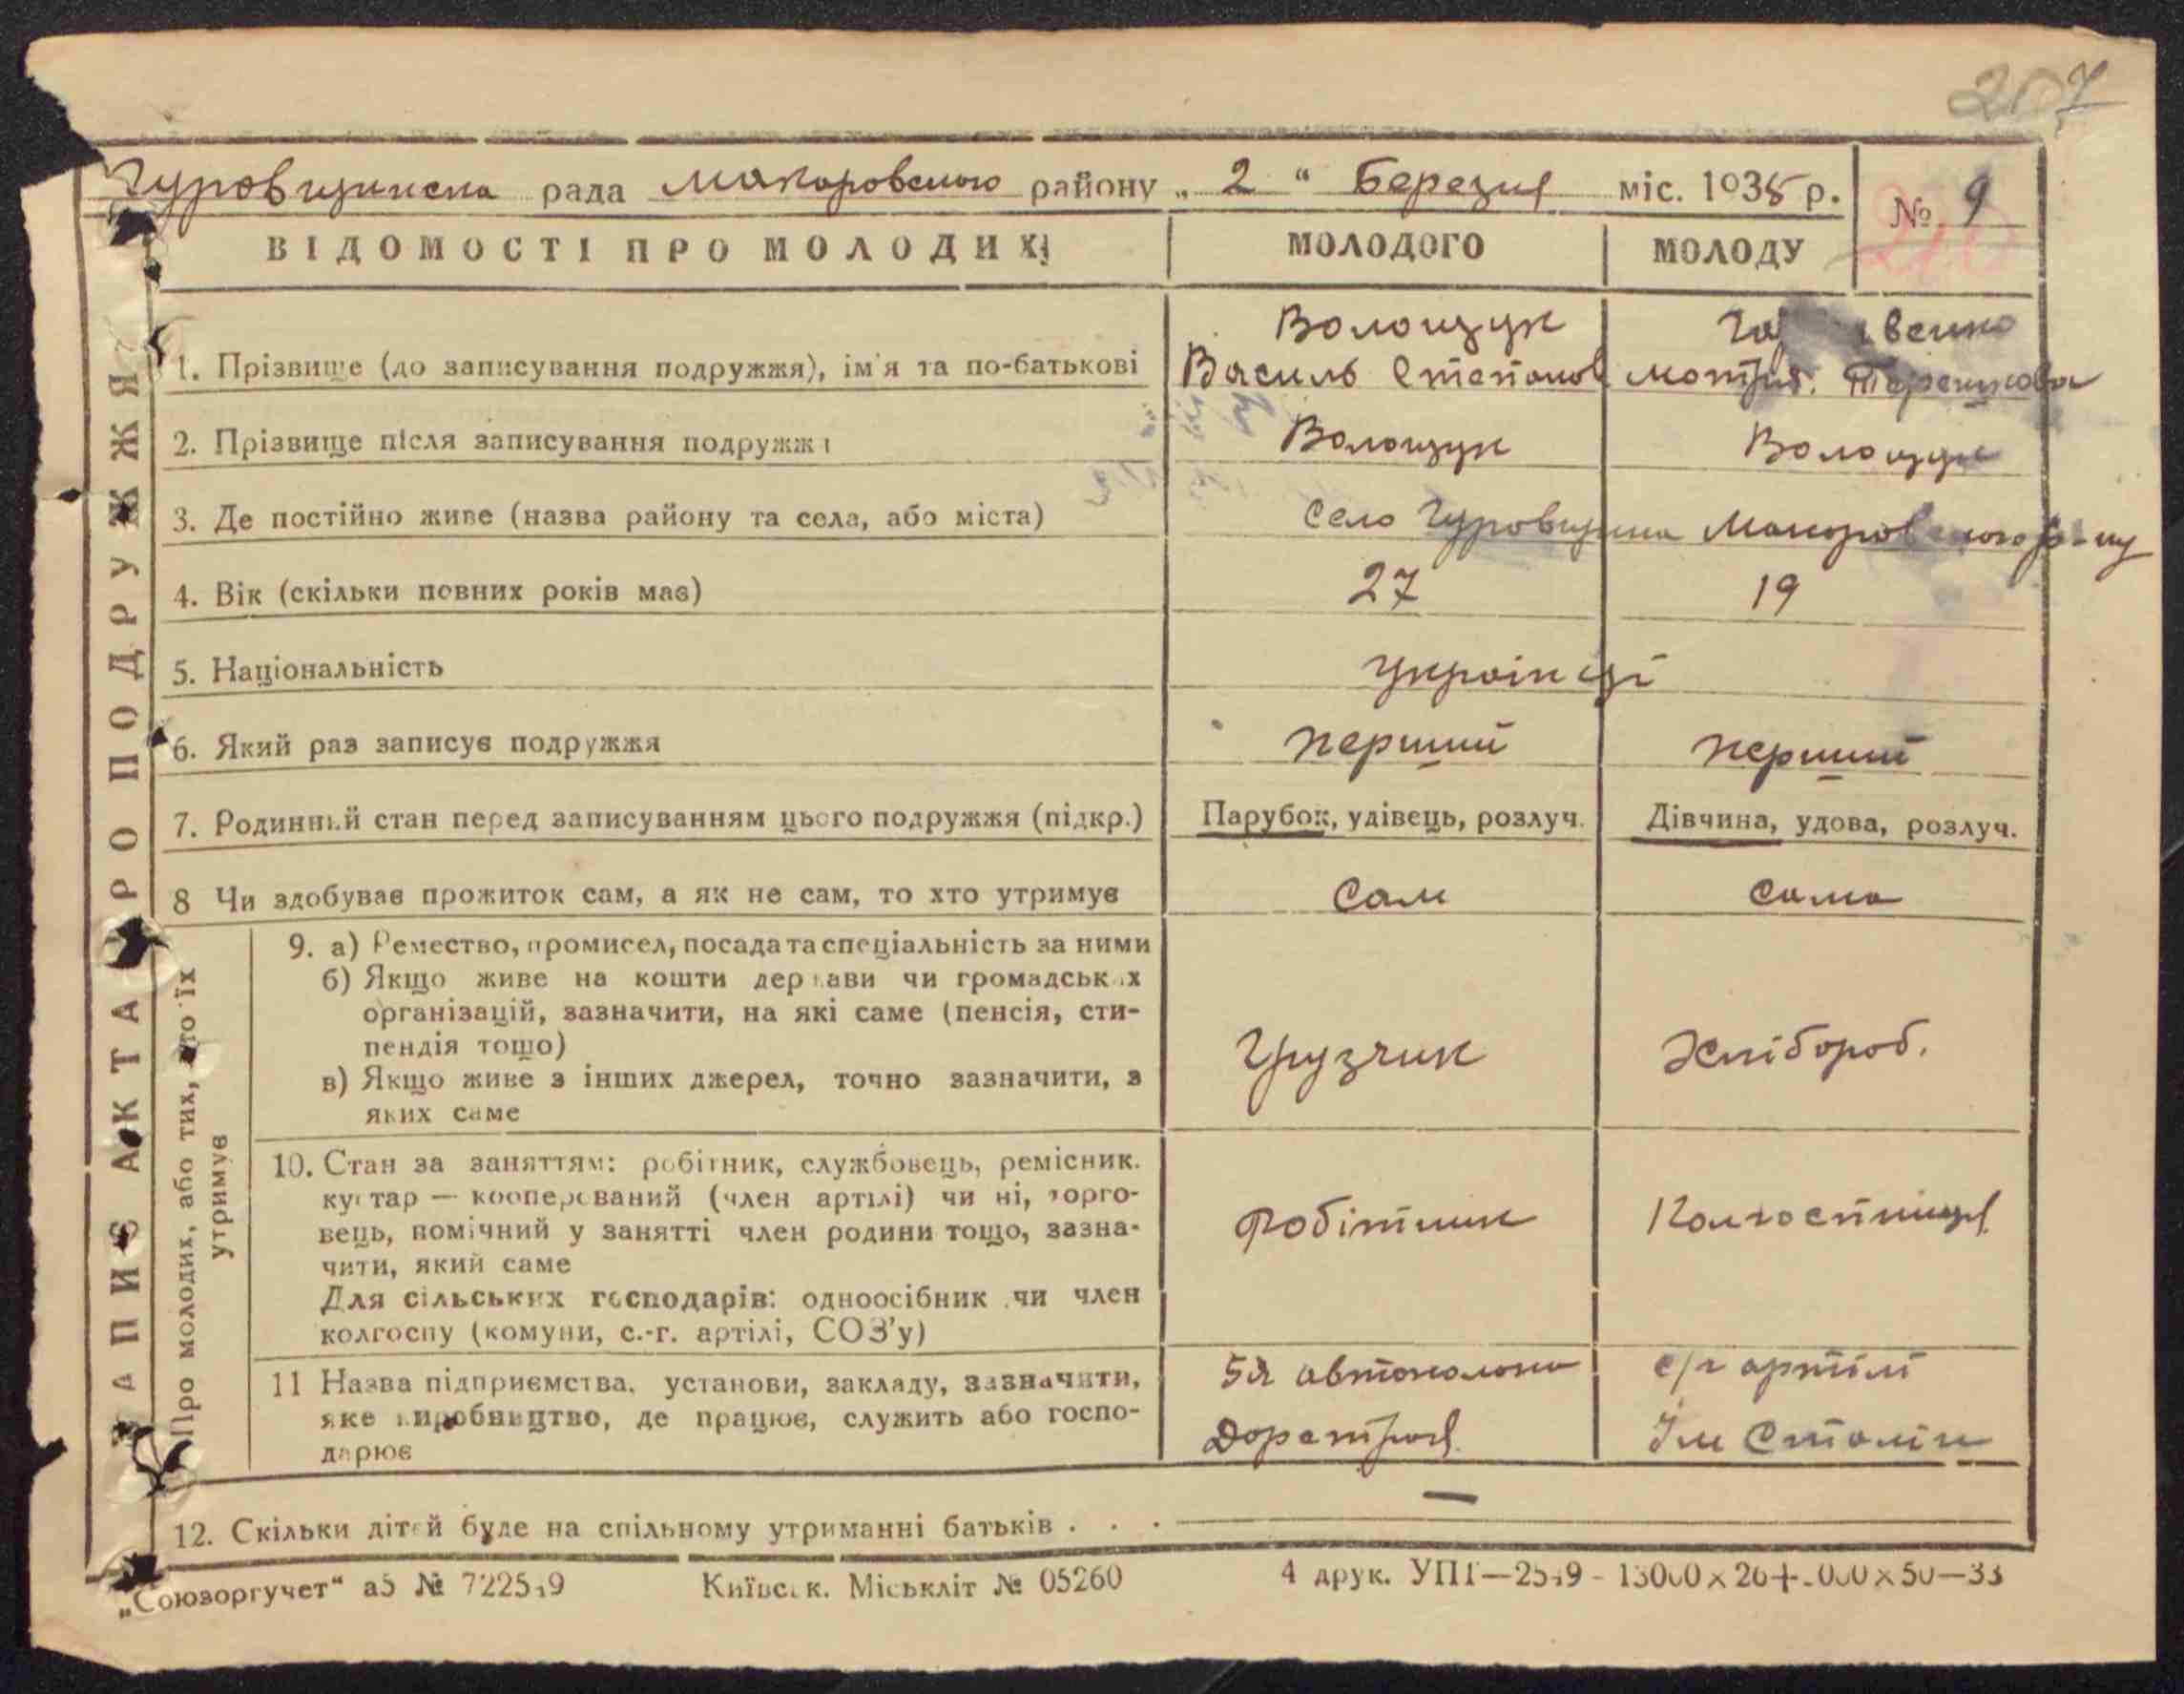 207
Гуровщинска рада Макаровского району „ 2 “ Березня міс. 1935 р. № 9
ВІДОМОСТІ ПРО МОЛОДИХ МОЛОДОГО МОЛОДУ
Волощук
1. Прізвище (до записування подружжя), ім'я та по-батькові Василь Степанов Мотря
2. Прізвище після записування подружжя Волощук Волощук
3. Де постійно живе (назва району та села, або міста) Село Гуровщина Макаровського р-ну
4. Вік (скільки повних років має) 27 19
5. Національність Українці
6. Який раз записує подружжя перший перший
7. Родинний стан перед записуванням цього подружжя (підкр.) Парубок, удівець, розлуч. Дівчина, удова, розлуч.
8 Чи здобуває прожиток сам, а як не сам, то хто утримує Сам Сама
ЗАПИС АКТА ПРО ПОДРУЖЖЯ
Про молодих, або тих, хто їх
утримує
9. а) Ремество, промисел, посада та спеціальність за ними
б) Якщо живе на кошти держави чи громадських
організацій, зазначити, на які саме (пенсія, сти-
пендія тощо)
в) Якщо живе з інших джерел, точно зазначити, з
яких саме
Грузчик Хлібороб.
10. Стан за заняттям: робітник, службовець, ремісник.
кустар — кооперований (член артілі) чи ні, торго-
вець, помічний у занятті член родини тощо, зазна-
чити, який саме
Для сільських господарів: одноосібник чи член
колгоспу (комуни, с.-г. артілі, СОЗ'у)
Робітник Колгоспниця
11 Назва підприємства, установи, закладу, зазначити,
яке виробництво, де працює, служить або госпо-
дарює
5я автоколона с/г артілі
Дорстроя Ім Сталін
12. Скільки дітей буде на спільному утриманні батьків . . . —
„Союзоргучет“ а5 № Київськ. Міськліт № 05260 4 друк. УПП